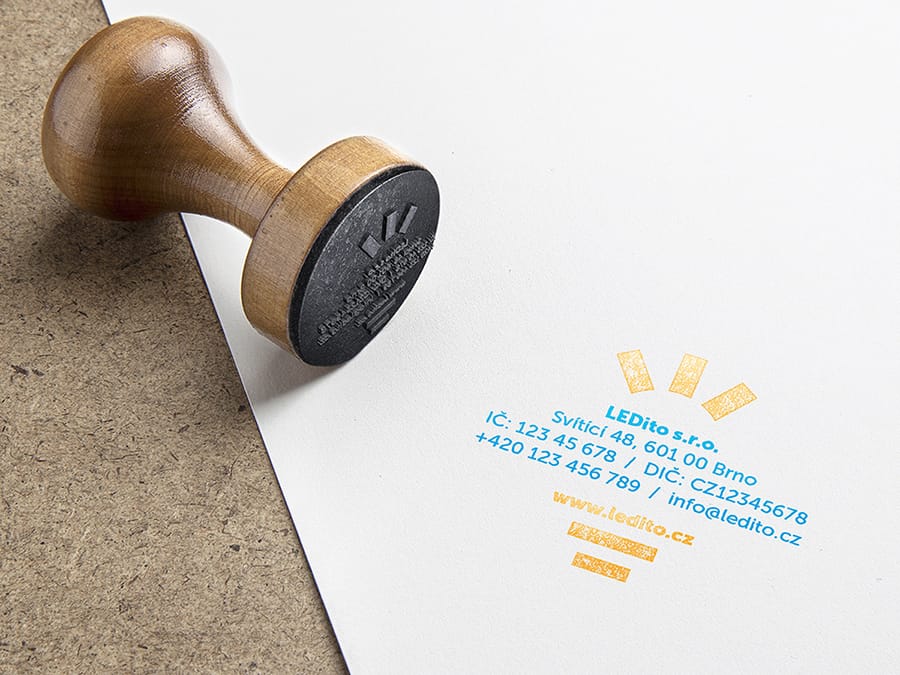 LEDito s.r.o.
Svítící 48, 601 00 Brno
IČ: 123 45 678 / DIČ: CZ12345678
+420 123 456 789 / info@ledito.cz
www.ledito.cz